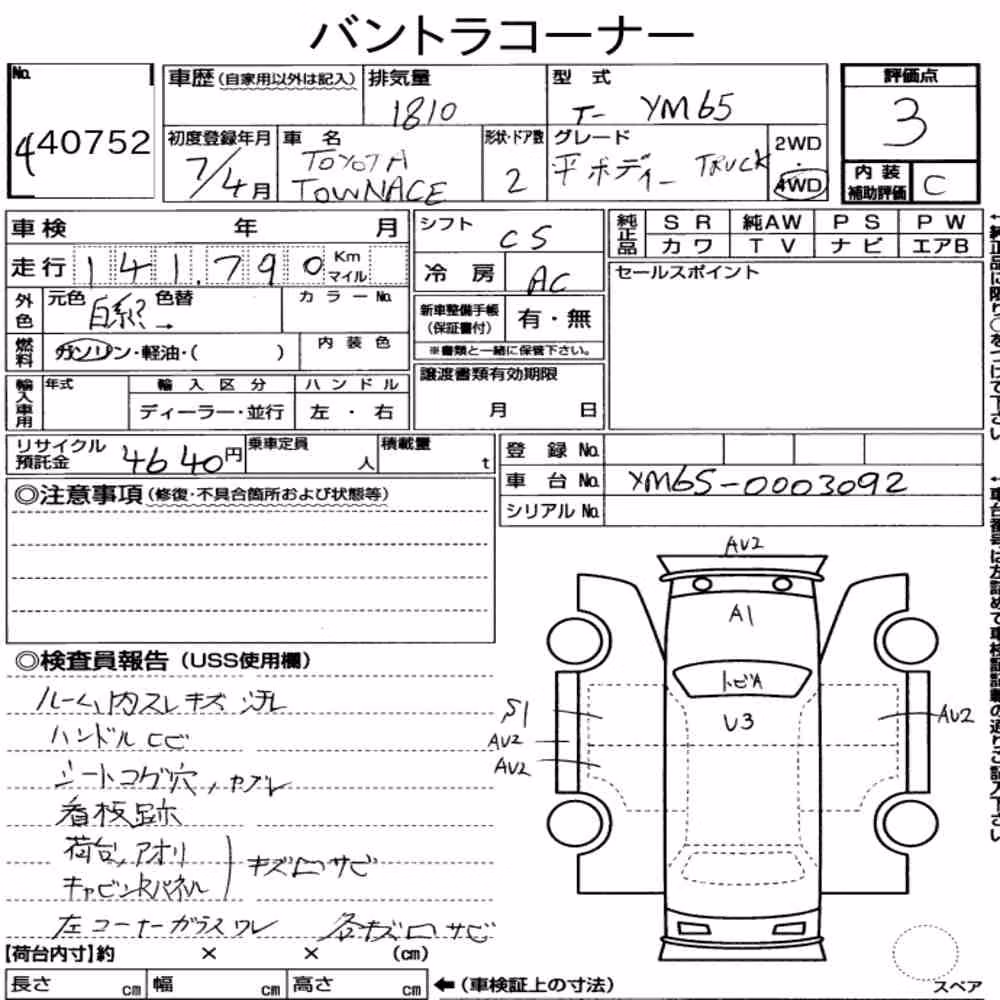 バントラコーナー
No.
440752
車歴(自家用以外は記入)
排気量
1810
型 式
T- YM65
評価点
3
初度登録年月
7/4月
車 名
TOYOTA
TOWNACE
形状・ドア数
2
グレード
平ボディー TRUCK
2WD
・
4WD
内装
補助評価
C
車検 年 月
シフト
CS
純正品
SR 純AW PS PW
カワ TV ナビ エアB
走行 141,790 Km
マイル
冷 房
AC
セールスポイント
外色
元色 色替
白系→
カラーNo.
新車整備手帳
(保証書付)
有・無
※書類と一緒に保管下さい。
燃料
ガソリン・軽油・( )
内装色
輸入車用
年式
輸入区分
ハンドル
ディーラー・並行
左・右
譲渡書類有効期限
月 日
リサイクル
預託金
4640円
乗車定員
人
積載量
t
登 録 No.
車 台 No.
YM65-0003092
シリアル No.
◎注意事項(修復・不具合箇所および状態等)
◎検査員報告(USS使用欄)
ルーム内スレキズ 汚レ
ハンドル ヒビ
シートコゲ穴, ヤブレ
看板跡
荷台,アオリ
キャビンRパネル
キズ凹サビ
左コーナーガラスワレ
各キズ凹サビ
AU2
A1
トビA
U3
S1
AU2
AU2
AU2
【荷台内寸】約 × × (cm)
長さ cm 幅 cm 高さ cm
←(車検証上の寸法)
スペア
←純正品に限り○をつけて下さい